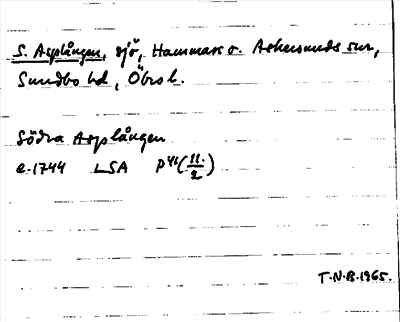 S. Asplången, sjö, Hammars o. Askersunds snr,
Sundbo hd, Öbro l.
Södra Asplången
c. 1744 LSA P 41 (11/2)
T.N.B. 1965.